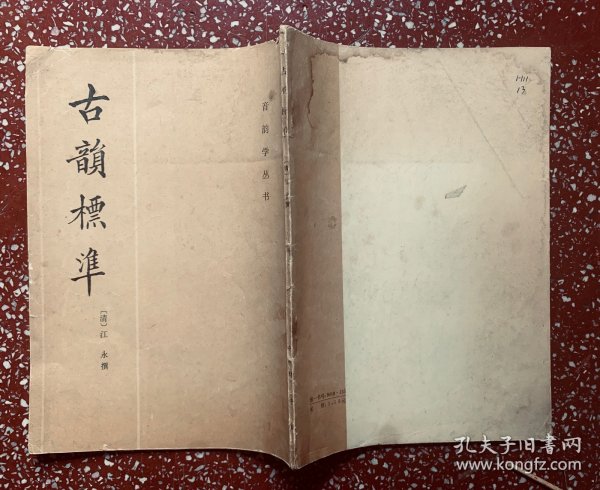 古韻標準
〔清〕江永撰
音韵学丛书
13
孔夫子旧书网
www.kongfz.com